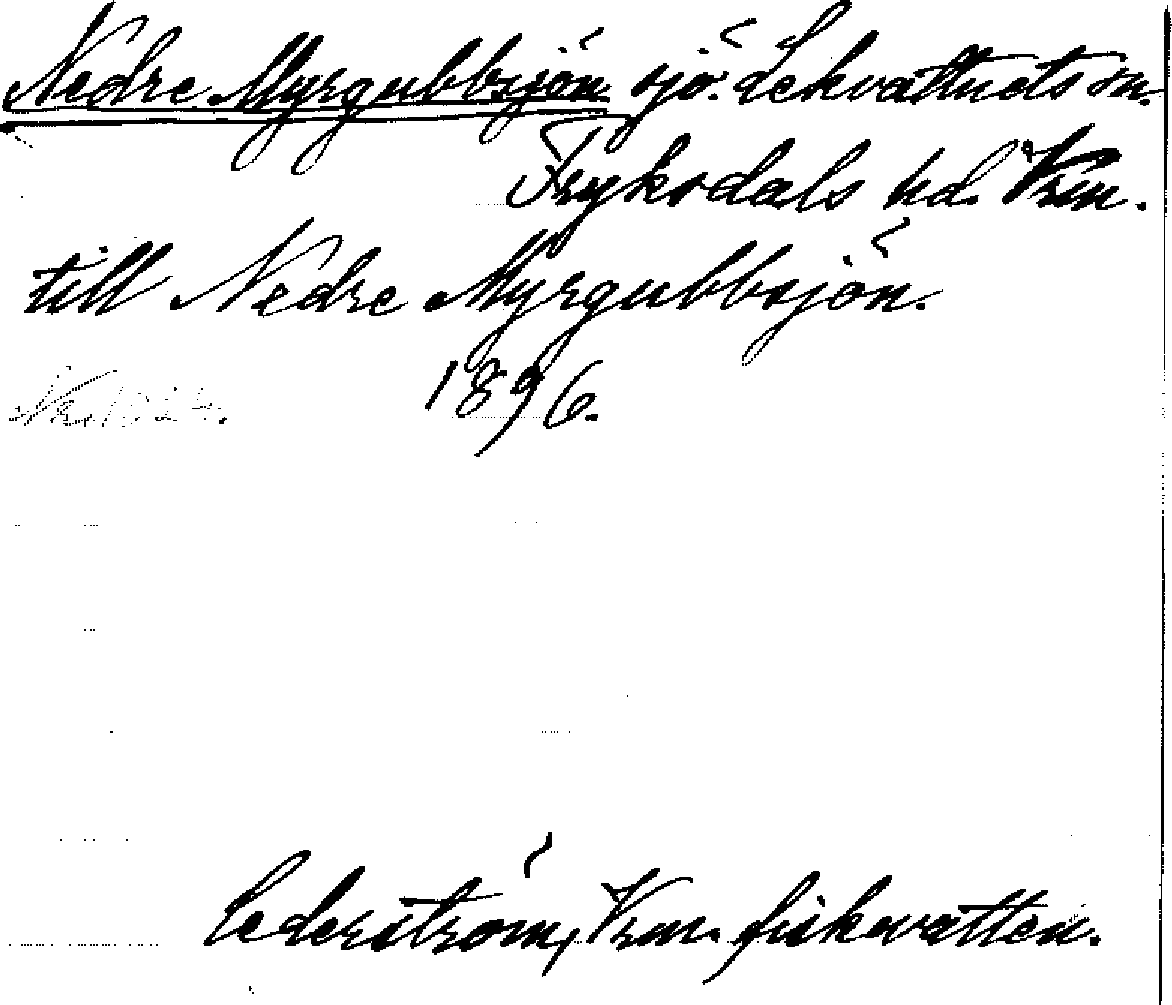 Nedre Myrgubbsjön sjö. Lekvattnets sn.
Fryksdals hd. Vrm.
till Nedre Myrgubbsjön.
1896.
Cederström, Vrm. fiskevatten.